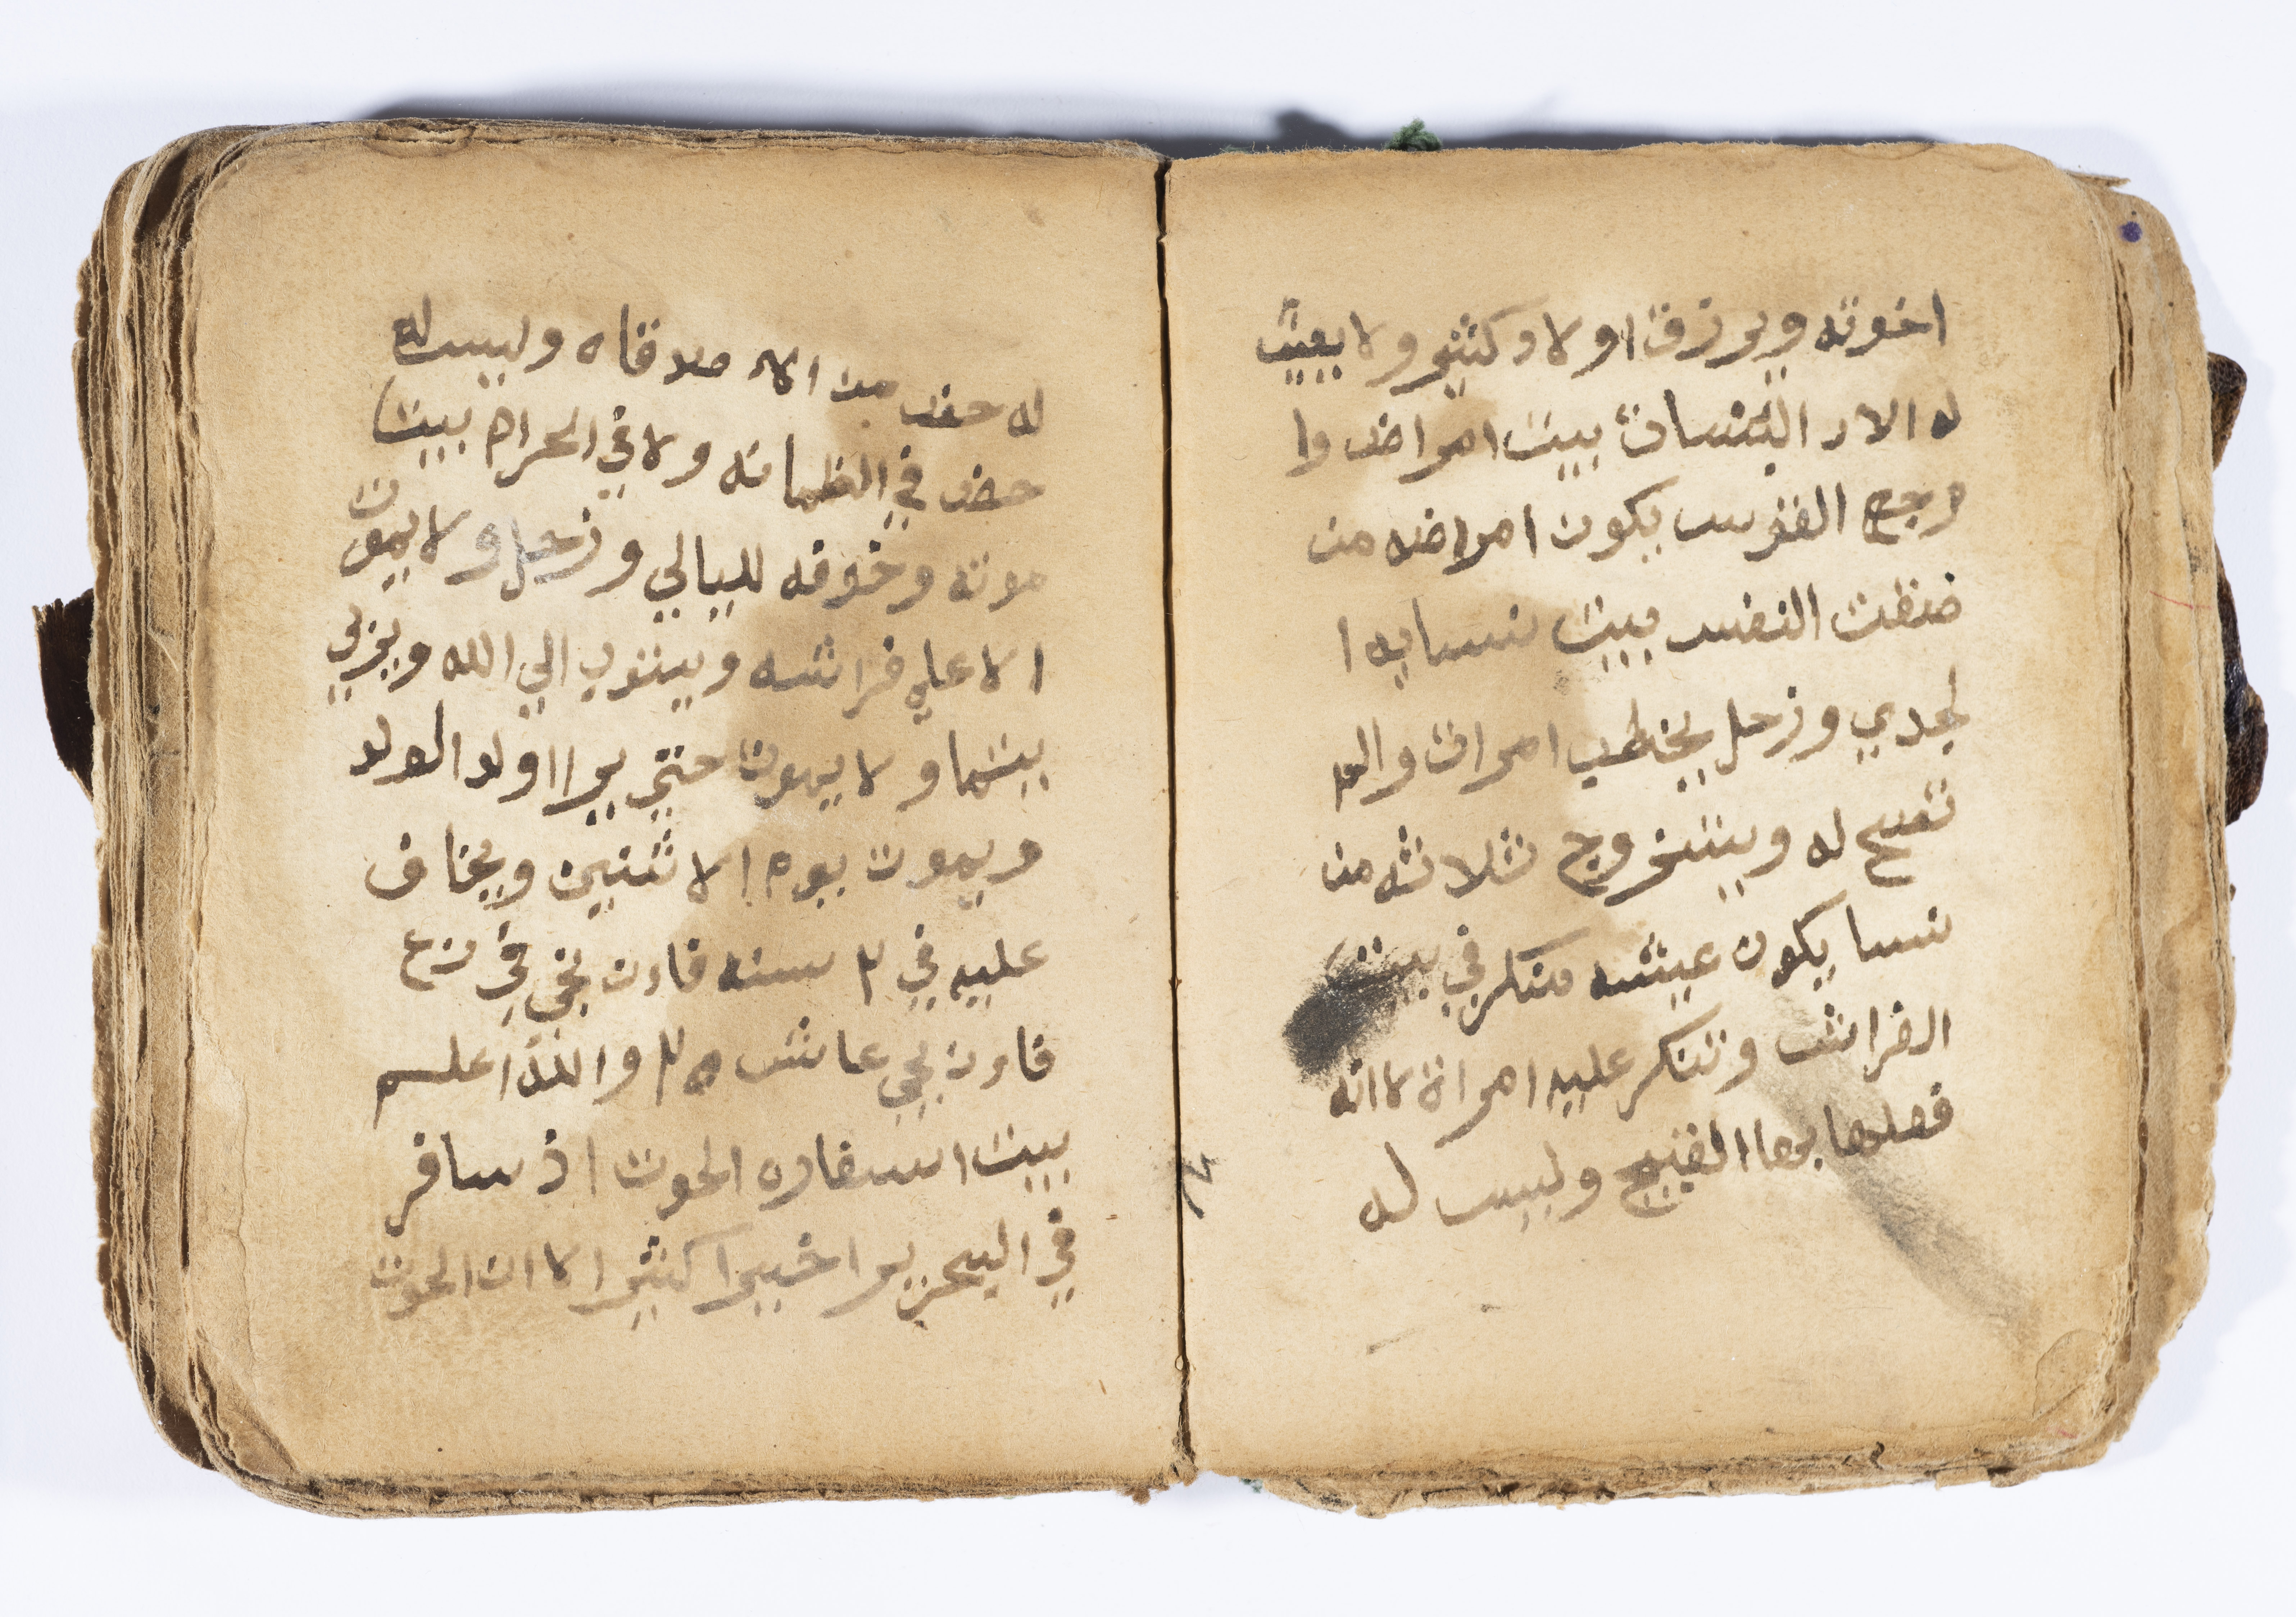 اخوته ويرزق اولاد كثير ولا يعيش
له الا د البنسات بيت امراضه وا
وجع الفقرس يكون امراضه من
ضفت النفس بيت نسايه ا
لجدي وزحل يخطب امرات والم
تصح له ويتنخروج ثلاثه من
نسا يكون عيشه متكر في بيت
الفراش وتنكر عليه امراة لاانه
فصلها بها القبيح وليس له
له حض من الا صدقاه وليس له
حض في الظمانه ولا في الحرام بيت
موته وخوفه لليالي وزحل ولا يموت
الا علي فراشه ويتوب الي الله ويزني
بيتما ولا يموت حتي يرا اولد الولد
ويموت يوم الاثنين ويخاف
عليه في ٢ سنه فاون نجي في زح
فاون نجي عاش ٢٥ والله اعلم
بيت اسفاره الحوت اذ سافر
في البحر يرا خيرا كثيرا لاان الحوت